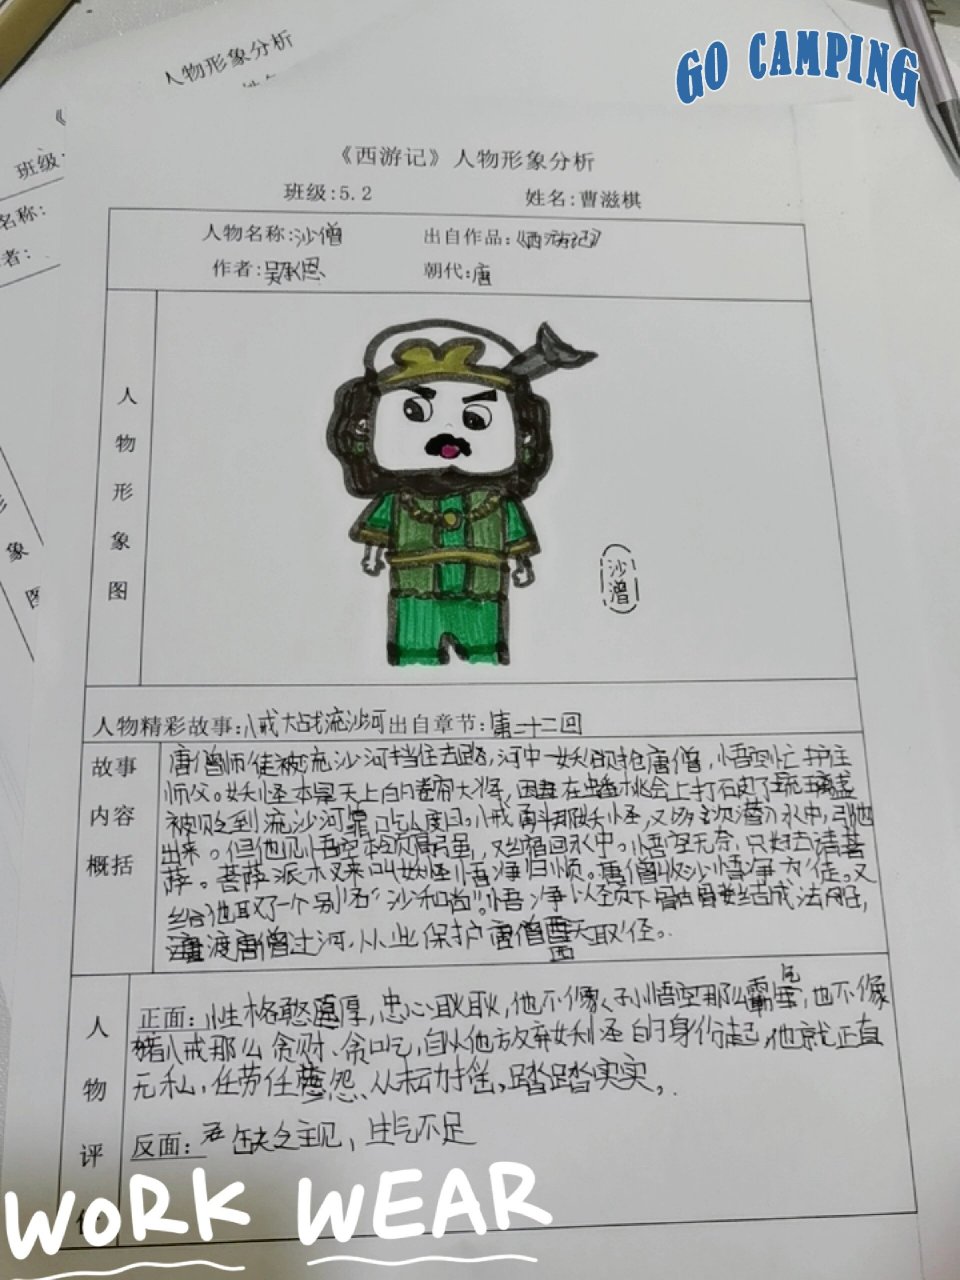 GO CAMPING
人物形象分析
班级
名称:
者:
《西游记》人物形象分析
班级:5.2 姓名:曹滋棋
人物名称:沙僧 出自作品:《西游记》
作者:吴承恩 朝代:唐
人物形象图
沙僧
象
图
人物精彩故事:八戒大战流沙河 出自章节:第二十二回
故事内容概括
唐僧师徒被流沙河挡住去路,河中一妖欲抢唐僧,悟空忙护住
师父。妖怪本是天上的卷帘大将,因在蟠桃会上打碎了琉璃盏
被贬到流沙河靠吃人度日。八戒勇斗那妖怪,又多次潜入水中,引他
出来。但他见悟空本领高强,又缩回水中。悟空无奈,只好去请菩
萨。菩萨派木叉来叫妖怪悟净归顺。唐僧收沙悟净为徒。又
给他取了一个别名"沙和尚"。悟净以颈下骷髅结成法船,
渡唐僧过河,从此保护唐僧西天取经。
人物评价
正面:性格憨厚,忠心耿耿,他不像孙悟空那么霸气,也不像
猪八戒那么贪财、贪吃,自从他放弃妖怪的身份起,他就正直
无私,任劳任怨、从不动摇,踏踏实实。
反面:缺乏主见,生气不足
WORK WEAR